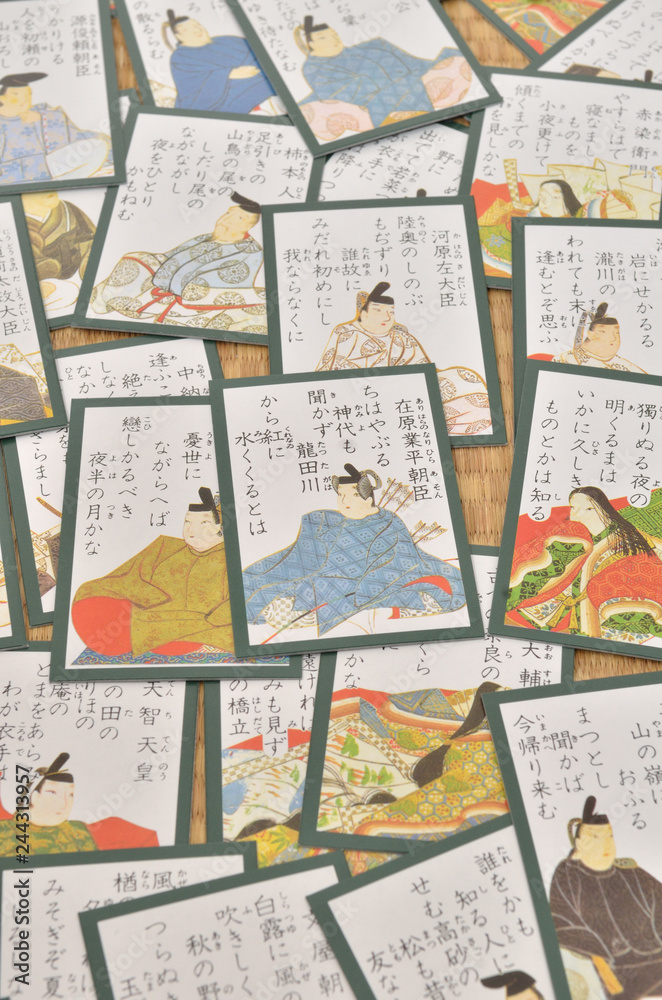 源俊頼朝臣
かりける
人を初瀬の
山おろし
散るらむ
待たなむ
赤染衛門
やすらはで
寝なまし
ものを
小夜更けて
傾くまでの
を見しかな
柿本人
足引きの
山鳥の尾の
しだり尾の
ながながし
夜をひとり
かもねむ
野に
出でて
若菜つ
衣手に
降りつ
河原左大臣
陸奥のしのぶ
もぢずり
誰故に
みだれ初めにし
我ならなくに
岩にせかるる
瀧川の
われても末に
逢むとぞ思ふ
太政大臣
中納
逢ふ
絶え
しなく
なか
さまし
憂世に
ながらへば
戀しかるべき
夜半の月かな
在原業平朝臣
ちはやぶる
神代も
聞かず
龍田川
から紅に
水くくるとは
獨りぬる夜の
明くるまは
いかに久しき
ものとかは知る
天智天皇
の田の
りほの
庵の
とまをあら
わが衣手は
遠ければ
みも見ず
の橋立
大輔
奈良の
山の嶺に
おふる
まつとし
聞かば
今帰り来む
風
楢の
みそぎぞ夏
白露に風の
吹きしく
秋の野
つらぬき
玉
文屋朝
誰をかも
知る人に
せむ高砂の
松も昔
友な
Adobe Stock
244313957